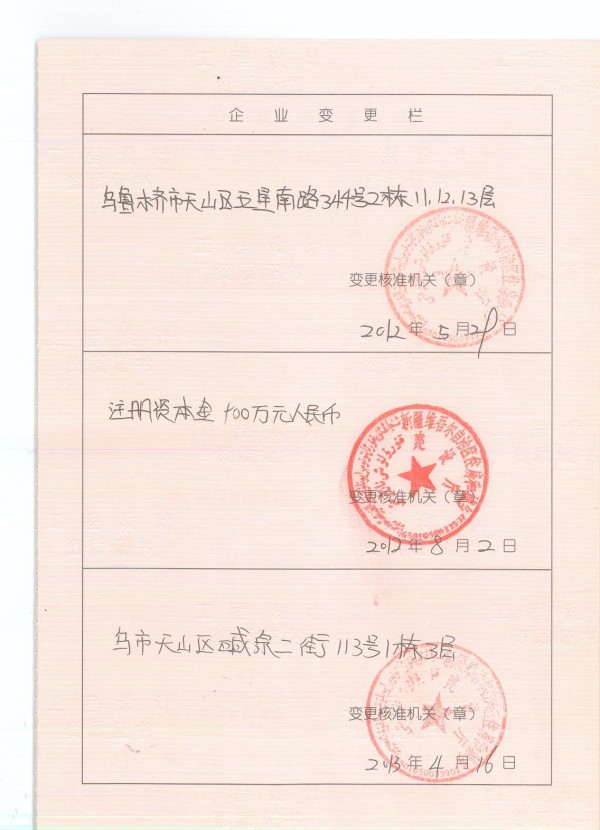 企业变更栏
乌鲁木齐市天山区五星南路344号2栋11.12.13层
变更核准机关（章）
2012年5月29日
注册资本金400万元人民币
新疆维吾尔自治区住房
建设厅
变更核准机关（章）
2012年8月2日
乌市天山区碱泉二街113号1栋3层
变更核准机关（章）
2013年4月16日